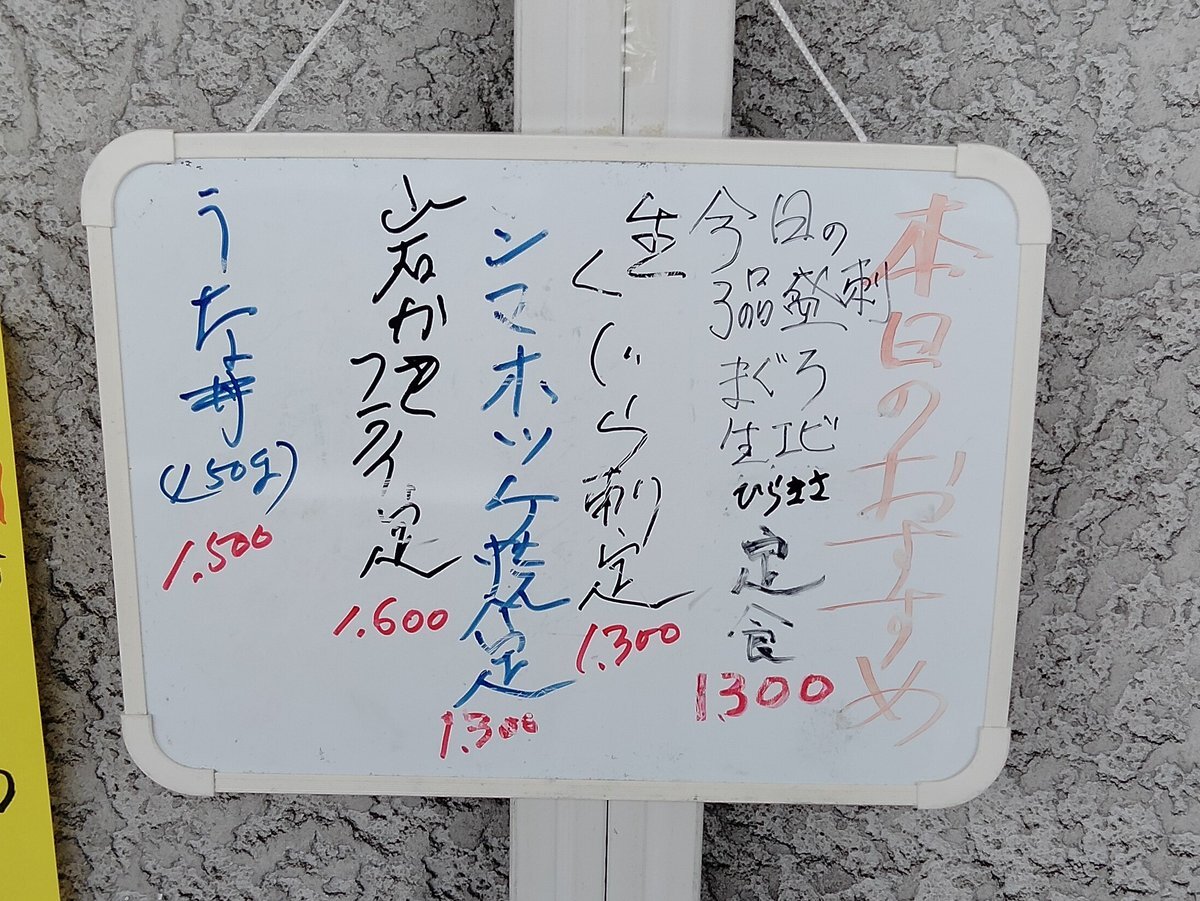 本日のおすすめ
今日の
3品盛刺
まぐろ
生エビ
ひらまさ
定食
1300
生くじら刺定
1.300
シマホッケ焼定
1.300
岩かきフライ定
1.600
うな丼
(150g)
1.500